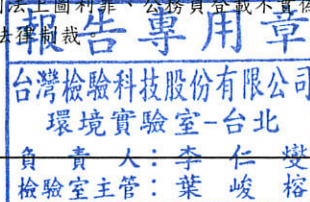 刑法上圖利罪、公務員登載不實偽
法律制裁。
報告專用章
台灣檢驗科技股份有限公司
環境實驗室-台北
負責人:李仁燮
檢驗室主管:葉峻榕